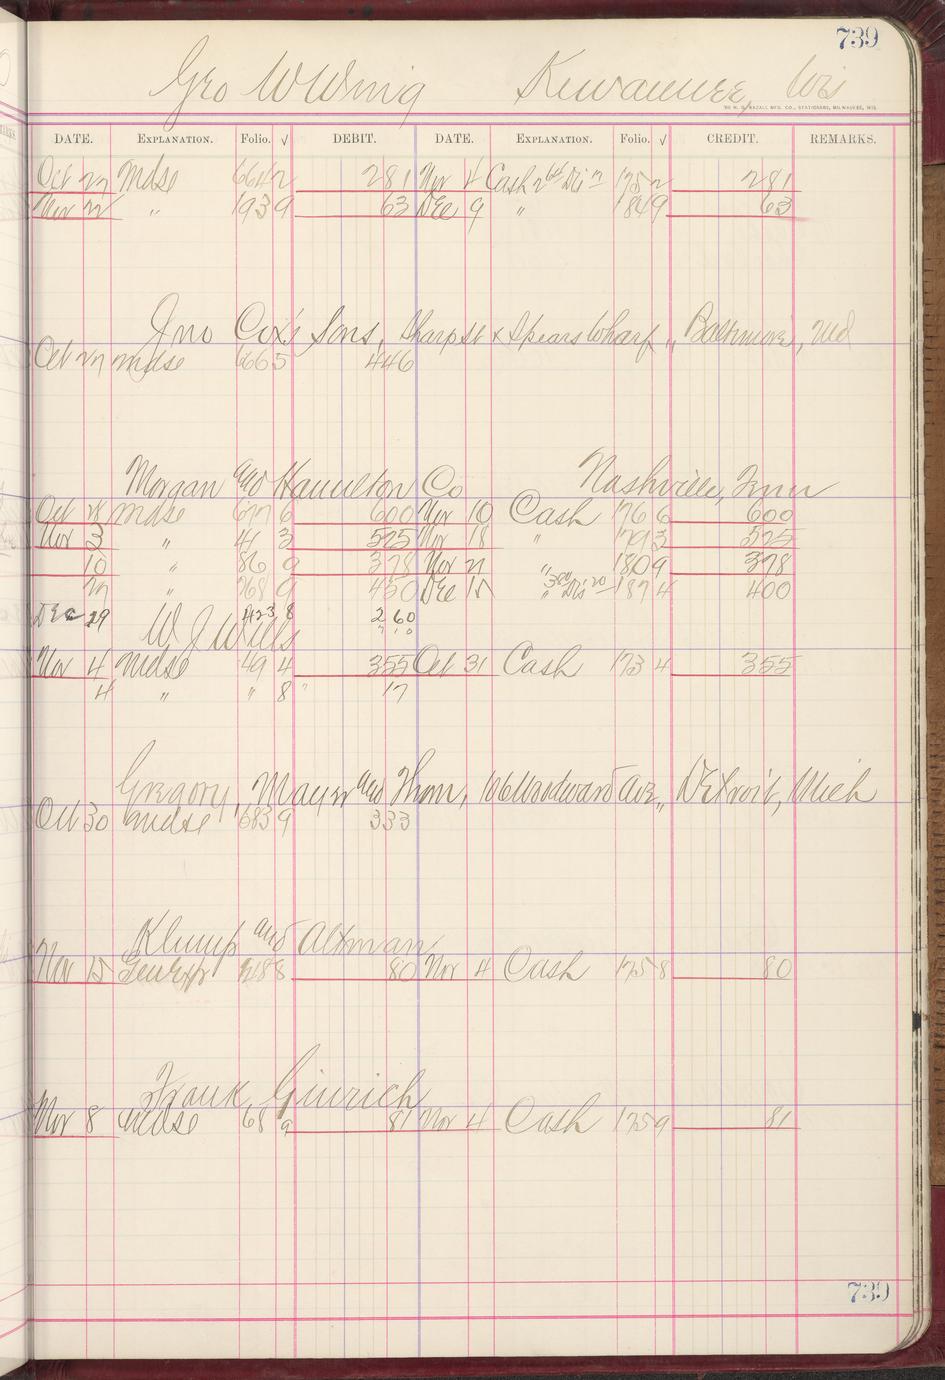 739
Geo W Wing Kewaunee, Wis
THE H. G. RAZALL MFG. CO., STATIONERS, MILWAUKEE, WIS.
DATE. EXPLANATION. Folio. √ DEBIT. DATE. EXPLANATION. Folio. √ CREDIT. REMARKS.
Oct 27 Mdse 664 2 281 Nov 4 Cash 175 2 281
Nov 22 " 193 9 63 Dec 9 " 184 9 63
Jno Cox's Sons, Sharp St & Spears Wharf, Baltimore, Md
Oct 27 Mdse 666 5 446
Morgan and Hamilton Co Nashville, Tenn
Oct 28 Mdse 677 6 600 Nov 10 Cash 176 6 600
Nov 3 " 41 3 525 Nov 18 " 179 3 525
10 " 86 9 378 Nov 21 " 180 9 378
" 268 9 450 Dec 15 " 187 4 400
Dec 29 423 8 2 60
W J Wills
Nov 4 Mdse 49 4 355 Oct 31 Cash 173 4 355
4 " " 8 17
Gregory, Mayer and Thom, 106 Woodward Ave., Detroit, Mich
Oct 30 Mdse 683 9 333
Klump and Altman
Nov 15 Gen Exp 218 8 80 Nov 4 Cash 175 8 80
Frank Ginrich
Nov 8 Mdse 68 9 81 Nov 4 Cash 175 9 81
739